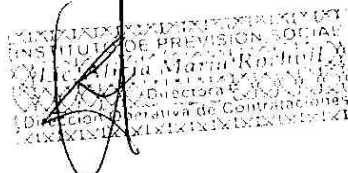 INSTITUTO DE PREVISION SOCIAL
Lic. María
Directora
Dirección Operativa de Contrataciones